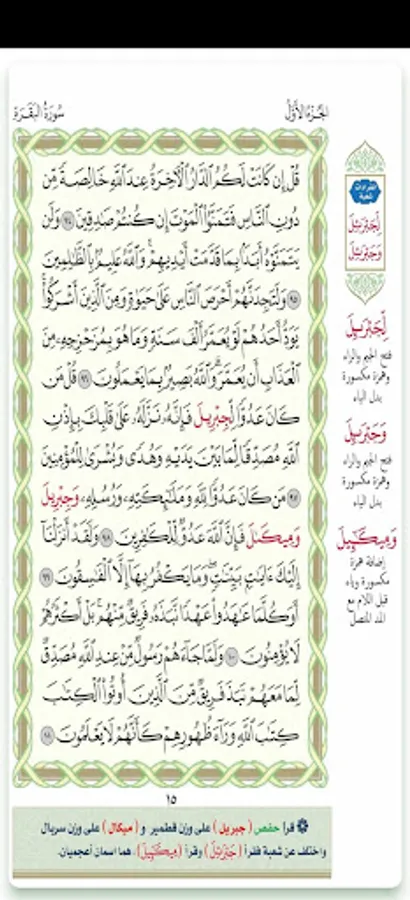 الجُزْءُ الأَوَّلُ
سُورَةُ البَقَرَةِ
قُلْ إِن كَانَتْ لَكُمُ ٱلدَّارُ ٱلْأَخِرَةُ عِندَ ٱللَّهِ خَالِصَةً مِّن
دُونِ ٱلنَّاسِ فَتَمَنَّوُا۟ ٱلْمَوْتَ إِن كُنتُمْ صَٰدِقِينَ ٩٤ وَلَن
يَتَمَنَّوْهُ أَبَدًۢا بِمَا قَدَّمَتْ أَيْدِيهِمْ ۗ وَٱللَّهُ عَلِيمٌۢ بِٱلظَّٰلِمِينَ
٩٥ وَلَتَجِدَنَّهُمْ أَحْرَصَ ٱلنَّاسِ عَلَىٰ حَيَوٰةٍ وَمِنَ ٱلَّذِينَ أَشْرَكُوا۟ ۚ
يَوَدُّ أَحَدُهُمْ لَوْ يُعَمَّرُ أَلْفَ سَنَةٍ وَمَا هُوَ بِمُزَحْزِحِهِۦ مِنَ
ٱلْعَذَابِ أَن يُعَمَّرَ ۗ وَٱللَّهُ بَصِيرٌۢ بِمَا يَعْمَلُونَ ٩٦ قُلْ مَن
كَانَ عَدُوًّا لِّجِبْرِيلَ فَإِنَّهُۥ نَزَّلَهُۥ عَلَىٰ قَلْبِكَ بِإِذْنِ
ٱللَّهِ مُصَدِّقًا لِّمَا بَيْنَ يَدَيْهِ وَهُدًى وَبُشْرَىٰ لِلْمُؤْمِنِينَ
٩٧ مَن كَانَ عَدُوًّا لِّلَّهِ وَمَلَٰٓئِكَتِهِۦ وَرُسُلِهِۦ وَجِبْرِيلَ
وَمِيكَىٰلَ فَإِنَّ ٱللَّهَ عَدُوٌّ لِّلْكَٰفِرِينَ ٩٨ وَلَقَدْ أَنزَلْنَآ
إِلَيْكَ ءَايَٰتٍۭ بَيِّنَٰتٍ ۖ وَمَا يَكْفُرُ بِهَآ إِلَّا ٱلْفَٰسِقُونَ ٩٩
أَوَكُلَّمَا عَٰهَدُوا۟ عَهْدًا نَّبَذَهُۥ فَرِيقٌ مِّنْهُم ۚ بَلْ أَكْثَرُهُمْ
لَا يُؤْمِنُونَ ١٠٠ وَلَمَّا جَآءَهُمْ رَسُولٌ مِّنْ عِندِ ٱللَّهِ مُصَدِّقٌ
لِّمَا مَعَهُمْ نَبَذَ فَرِيقٌ مِّنَ ٱلَّذِينَ أُوتُوا۟ ٱلْكِتَٰبَ
كِتَٰبَ ٱللَّهِ وَرَآءَ ظُهُورِهِمْ كَأَنَّهُمْ لَا يَعْلَمُونَ
١٥
القراءات
شعبة
لِّجَبْرَئِلَ
وَجَبْرَئِلَ
لِّجَبْرَئِلَ
فتح الجيم والراء
وهمزة مكسورة
بدل الياء
وَجَبْرَئِلَ
فتح الجيم والراء
وهمزة مكسورة
بدل الياء
وَمِيكَٰٓئِيلَ
إضافة همزة
مكسورة وياء
قبل اللام مع
المد المتصل
قرأ حفص ( جبريل ) على وزن قطمير و ( ميكال ) على وزن سربال
واختلف عن شعبة فقرأ ( جَبْرَئِلَ ) وقرأ ( مِيكَٰٓئِيلَ ) ، هما اسمان أعجميان.